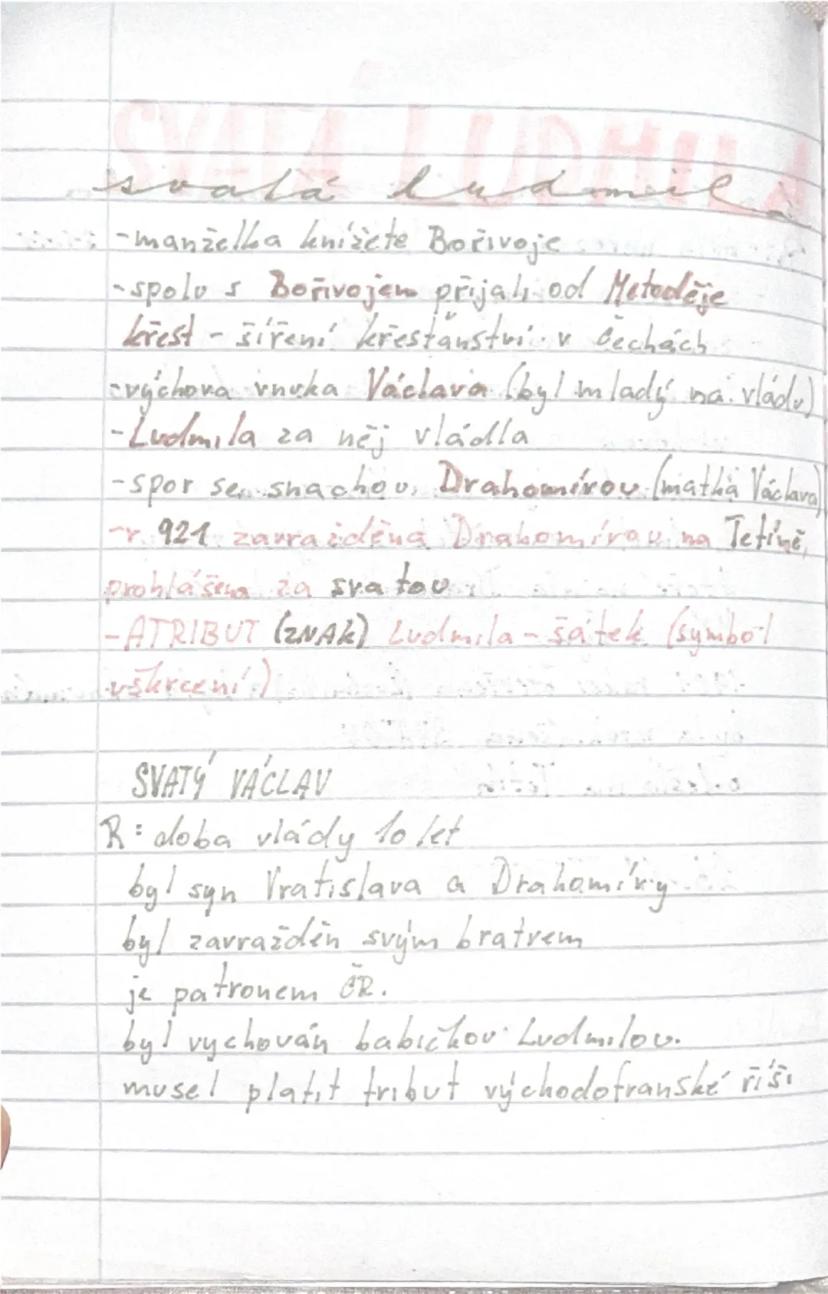 svatá ludmila
-manželka knížete Bořivoje
-spolu s Bořivojem přijali od Metoděje
křest - šíření křesťanství v Čechách
-výchova vnuka Václava (byl mladý na vládu)
-Ludmila za něj vládla
-spor se snachou Drahomírou (matka Václava)
-r 921 zavražděna Drahomírou na Tetíně,
prohlášena za svatou
-ATRIBUT (ZNAK) Ludmila - šátek (symbol
uškrcení)
SVATÝ VÁCLAV
R: doba vlády 10 let
byl syn Vratislava a Drahomíry
byl zavražděn svým bratrem
je patronem ČR.
byl vychován babičkou Ludmilou.
musel platit tribut východofranské říši